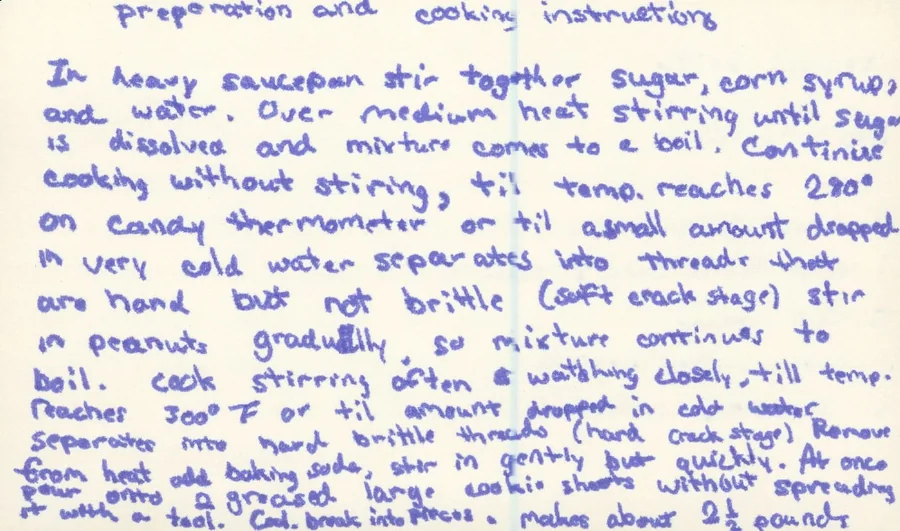 preperation and cooking instructions
In heavy saucepan stir together sugar, corn syrup,
and water. Over medium heat stirring until sugar
is dissolved and mixture comes to a boil. Continue
cooking without stiring, til temp. reaches 280°
on candy thermometer or til a small amount dropped
in very cold water separates into threads that
are hand but not brittle (soft crack stage) stir
in peanuts gradually, so mixture continues to
boil. cook stirring often watching closely, till temp.
reaches 300° F or til amount dropped in cold water
separates into hard brittle threads (hard crack stage) Remove
from heat add baking soda, stir in gently but quickly. At once
pour onto 2 greased large cookie sheets without spreading
it with a tool. Cool. break into pieces. makes about 2½ pounds